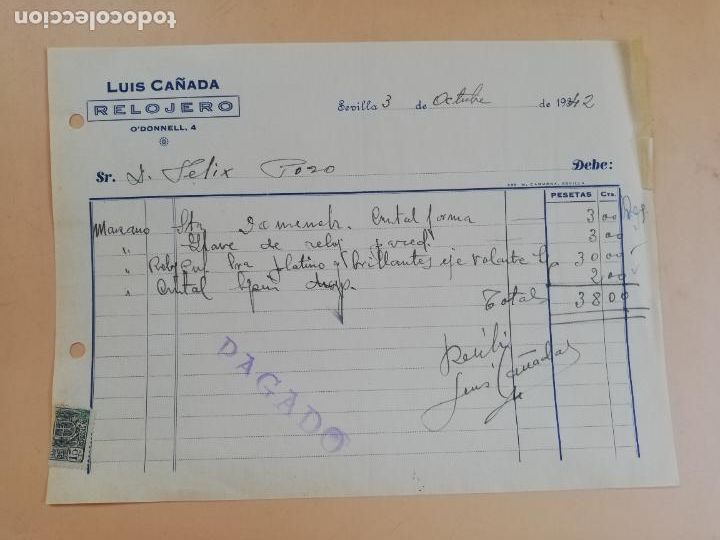 todocoleccion.net
LUIS CAÑADA
RELOJERO
O'DONNELL, 4
Sevilla 3 de Octubre de 1942
Sr. D. Felix Pozo Debe:
PESETAS Cts.
Manzano Cristal forma 3 00
" Llave de reloj pared 3 00
" Reloj platino y brillantes eje volante 30 00
" Cristal 2 00
Total 38 00
Recibí
Luis Cañada
PAGADO